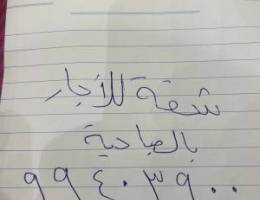 شقة للأجار
بالصباحية
٩٩٤٠٣٩٠٠